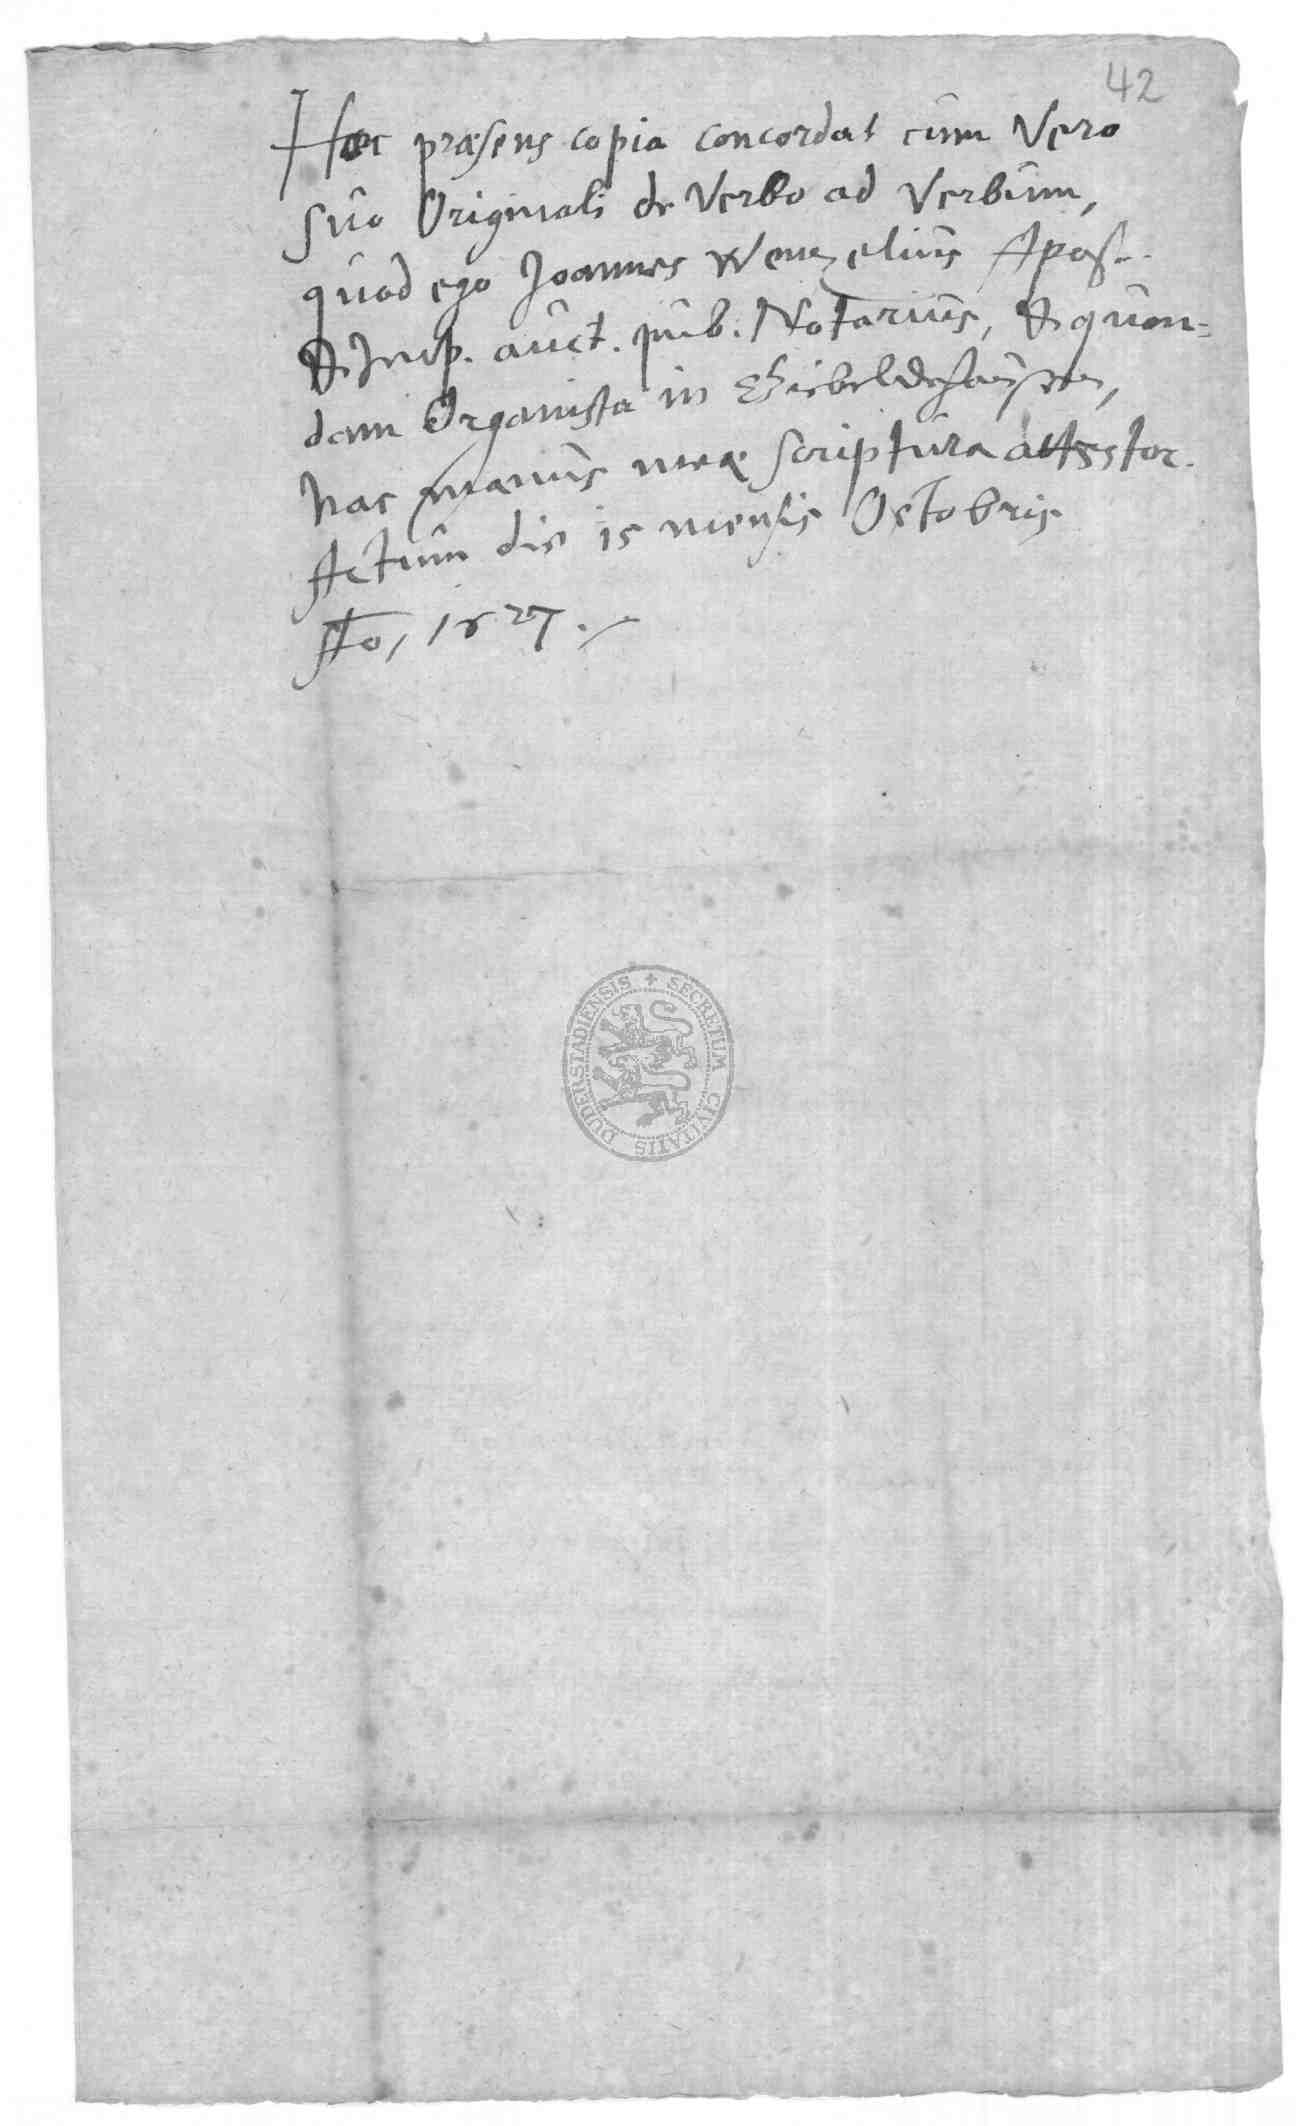 42
Haec præsens copia concordat cum Vero
suo Originali de Verbo ad Verbum,
quod ego Joannes Wenzelius Apost.
& Imp. auct. pub. Notarius, & quon-
dam Organista in Gieboldehausen,
hac manus meæ scriptura attestor.
Actum die 15 mensis Octobris
Ao, 1627.
SECRETUM CIVITATIS DUDERSTADIENSIS